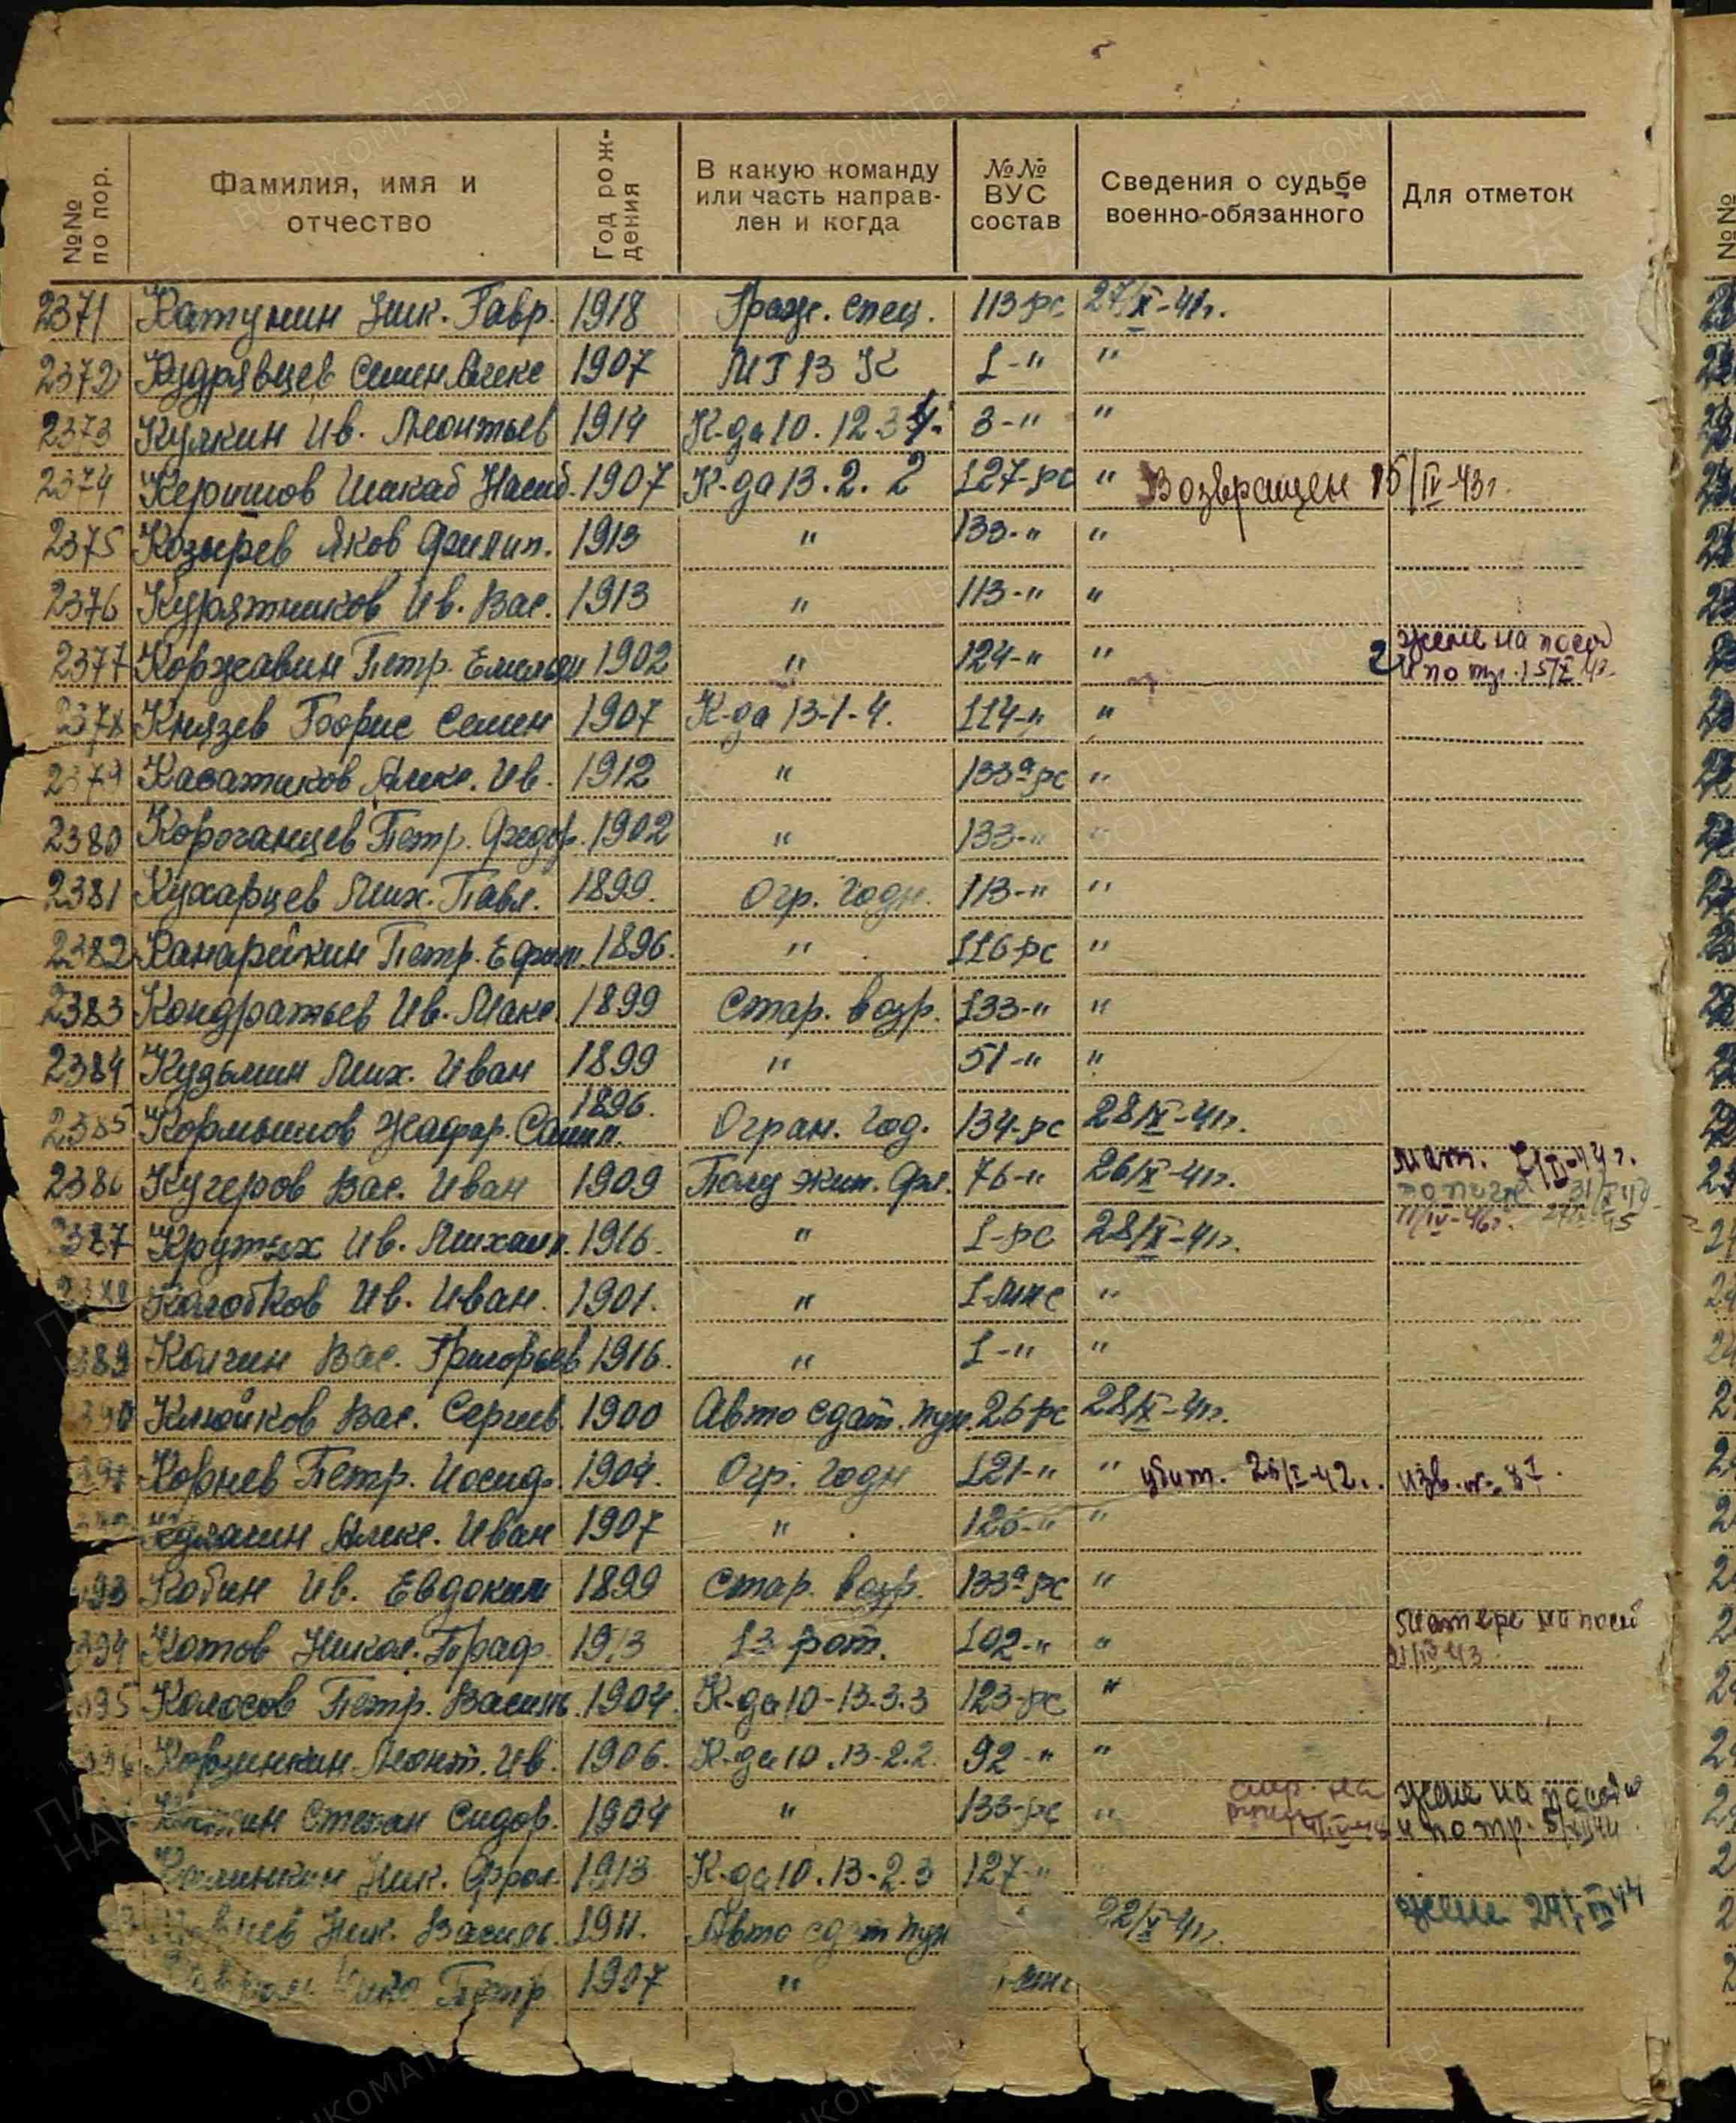 №№ по пор.
Фамилия, имя и отчество
Год рождения
В какую команду или часть направлен и когда
№№ ВУС состав
Сведения о судьбе военно-обязанного
Для отметок
2371 Катунин Ник. Гавр. 1918 Граж. спец. 113 рс 27/IX-41г.
2372 Кудрявцев Семен Алекс 1907 1-" "
2373 Кулкин Ив. Леонтьев 1914 К-да 10. 12. 3 3-" "
2374 Керимов Насиб. 1907 К-да 13. 2. 2 127-рс " Возвращен 15/IV-43г.
2375 Козырев Яков Филип. 1913 " 133-" "
2376 Курятников Ив. Вас. 1913 " 113-" "
2377 Коржавин Петр. Емельян 1902 " 124-" " жене на пособ
и по тр. 15/X
2378 Князев Борис Семен 1907 К-да 13-1-4. 114-" "
2379 Казатиков Алекс. Ив. 1912 " 133а рс "
2380 Короганцев Петр. Федор. 1902 " 133-" "
2381 Кухарцев Мих. Павл. 1899. Огр. годн. 113-" "
2382 Канарейкин Петр. Ефим. 1896. " 116-рс "
2383 Кондратьев Ив. Макс 1899 Стар. возр. 133-" "
2384 Кузьмин Мих. Иван 1899 " 51-" "
2385 Кормышов 1896. Огран. год. 134-рс 28/IX-41г.
2386 Кучеров Вас. Иван 1909 Полу экип. 76-" 26/IX-41г. мат.
2387 Крутых Ив. Михаил. 1916. " 1-рс 28/IX-41г. 11/IV-46г.
2388 Колобков Ив. Иван. 1901. " "
389 Колгин Вас. Григорьев 1916. " 1-" "
390 Клюйков Вас. Сергеев. 1900 Авто сдат. пун. 26 рс 28/IX-41г.
Корнев Петр. Иосиф. 1904. Огр. годн 121-" " убит. 42г. изв. №
Алекс. Иван 1907 " 126-" "
93 Кобин Ив. Евдоким 1899 Стар. возр. 133а-рс "
394 Котов Никол. Граф. 1913 13 рот. 102-" " матери на пособ
21/IV 43
395 Колосов Петр. Василь. 1904. К-да 10-13-3.3 123-рс "
396 Корзинкин Леонт. Ив. 1906. К-да 10. 13-2.2. 92-" "
Степан Сидор. 1904 " 133-рс " жене на пособ
и по тр.
Ник. Фрол. 1913 К-да 10. 13-2.3 127-"
Ник. Василь. 1911. Авто сдат пун 22/X-41г. жене
Петр 1907 "